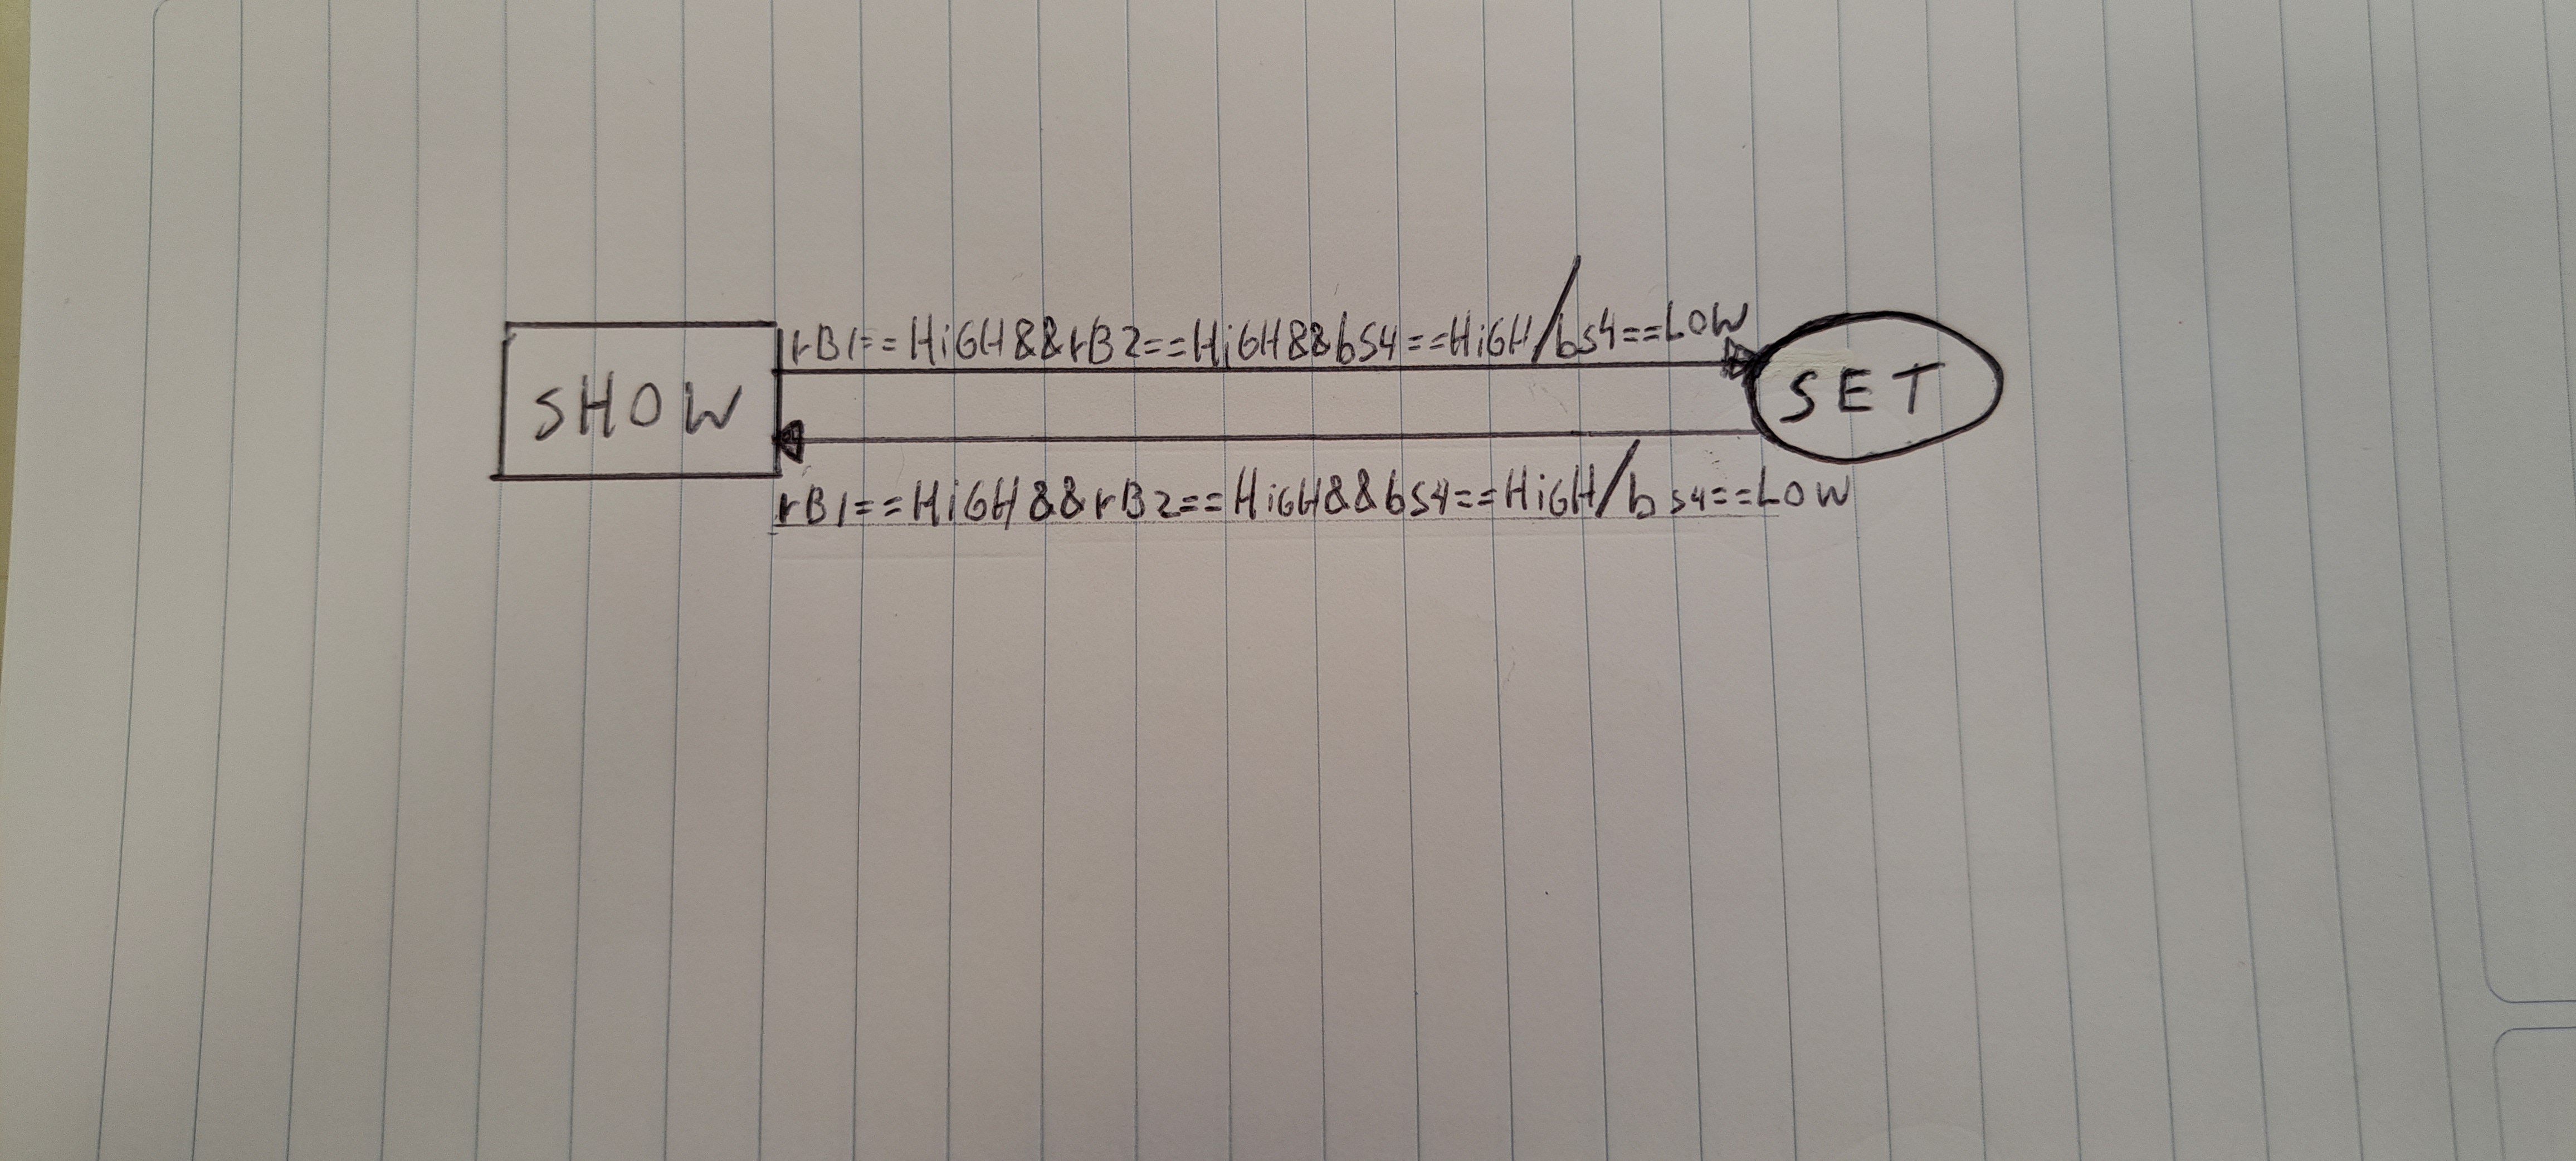 rB1==HiGH&&rB2==HiGH&&bS4==HiGH/bS4==LOW
SHOW
SET
rB1==HiGH&&rB2==HiGH&&bS4==HiGH/bS4==LOW